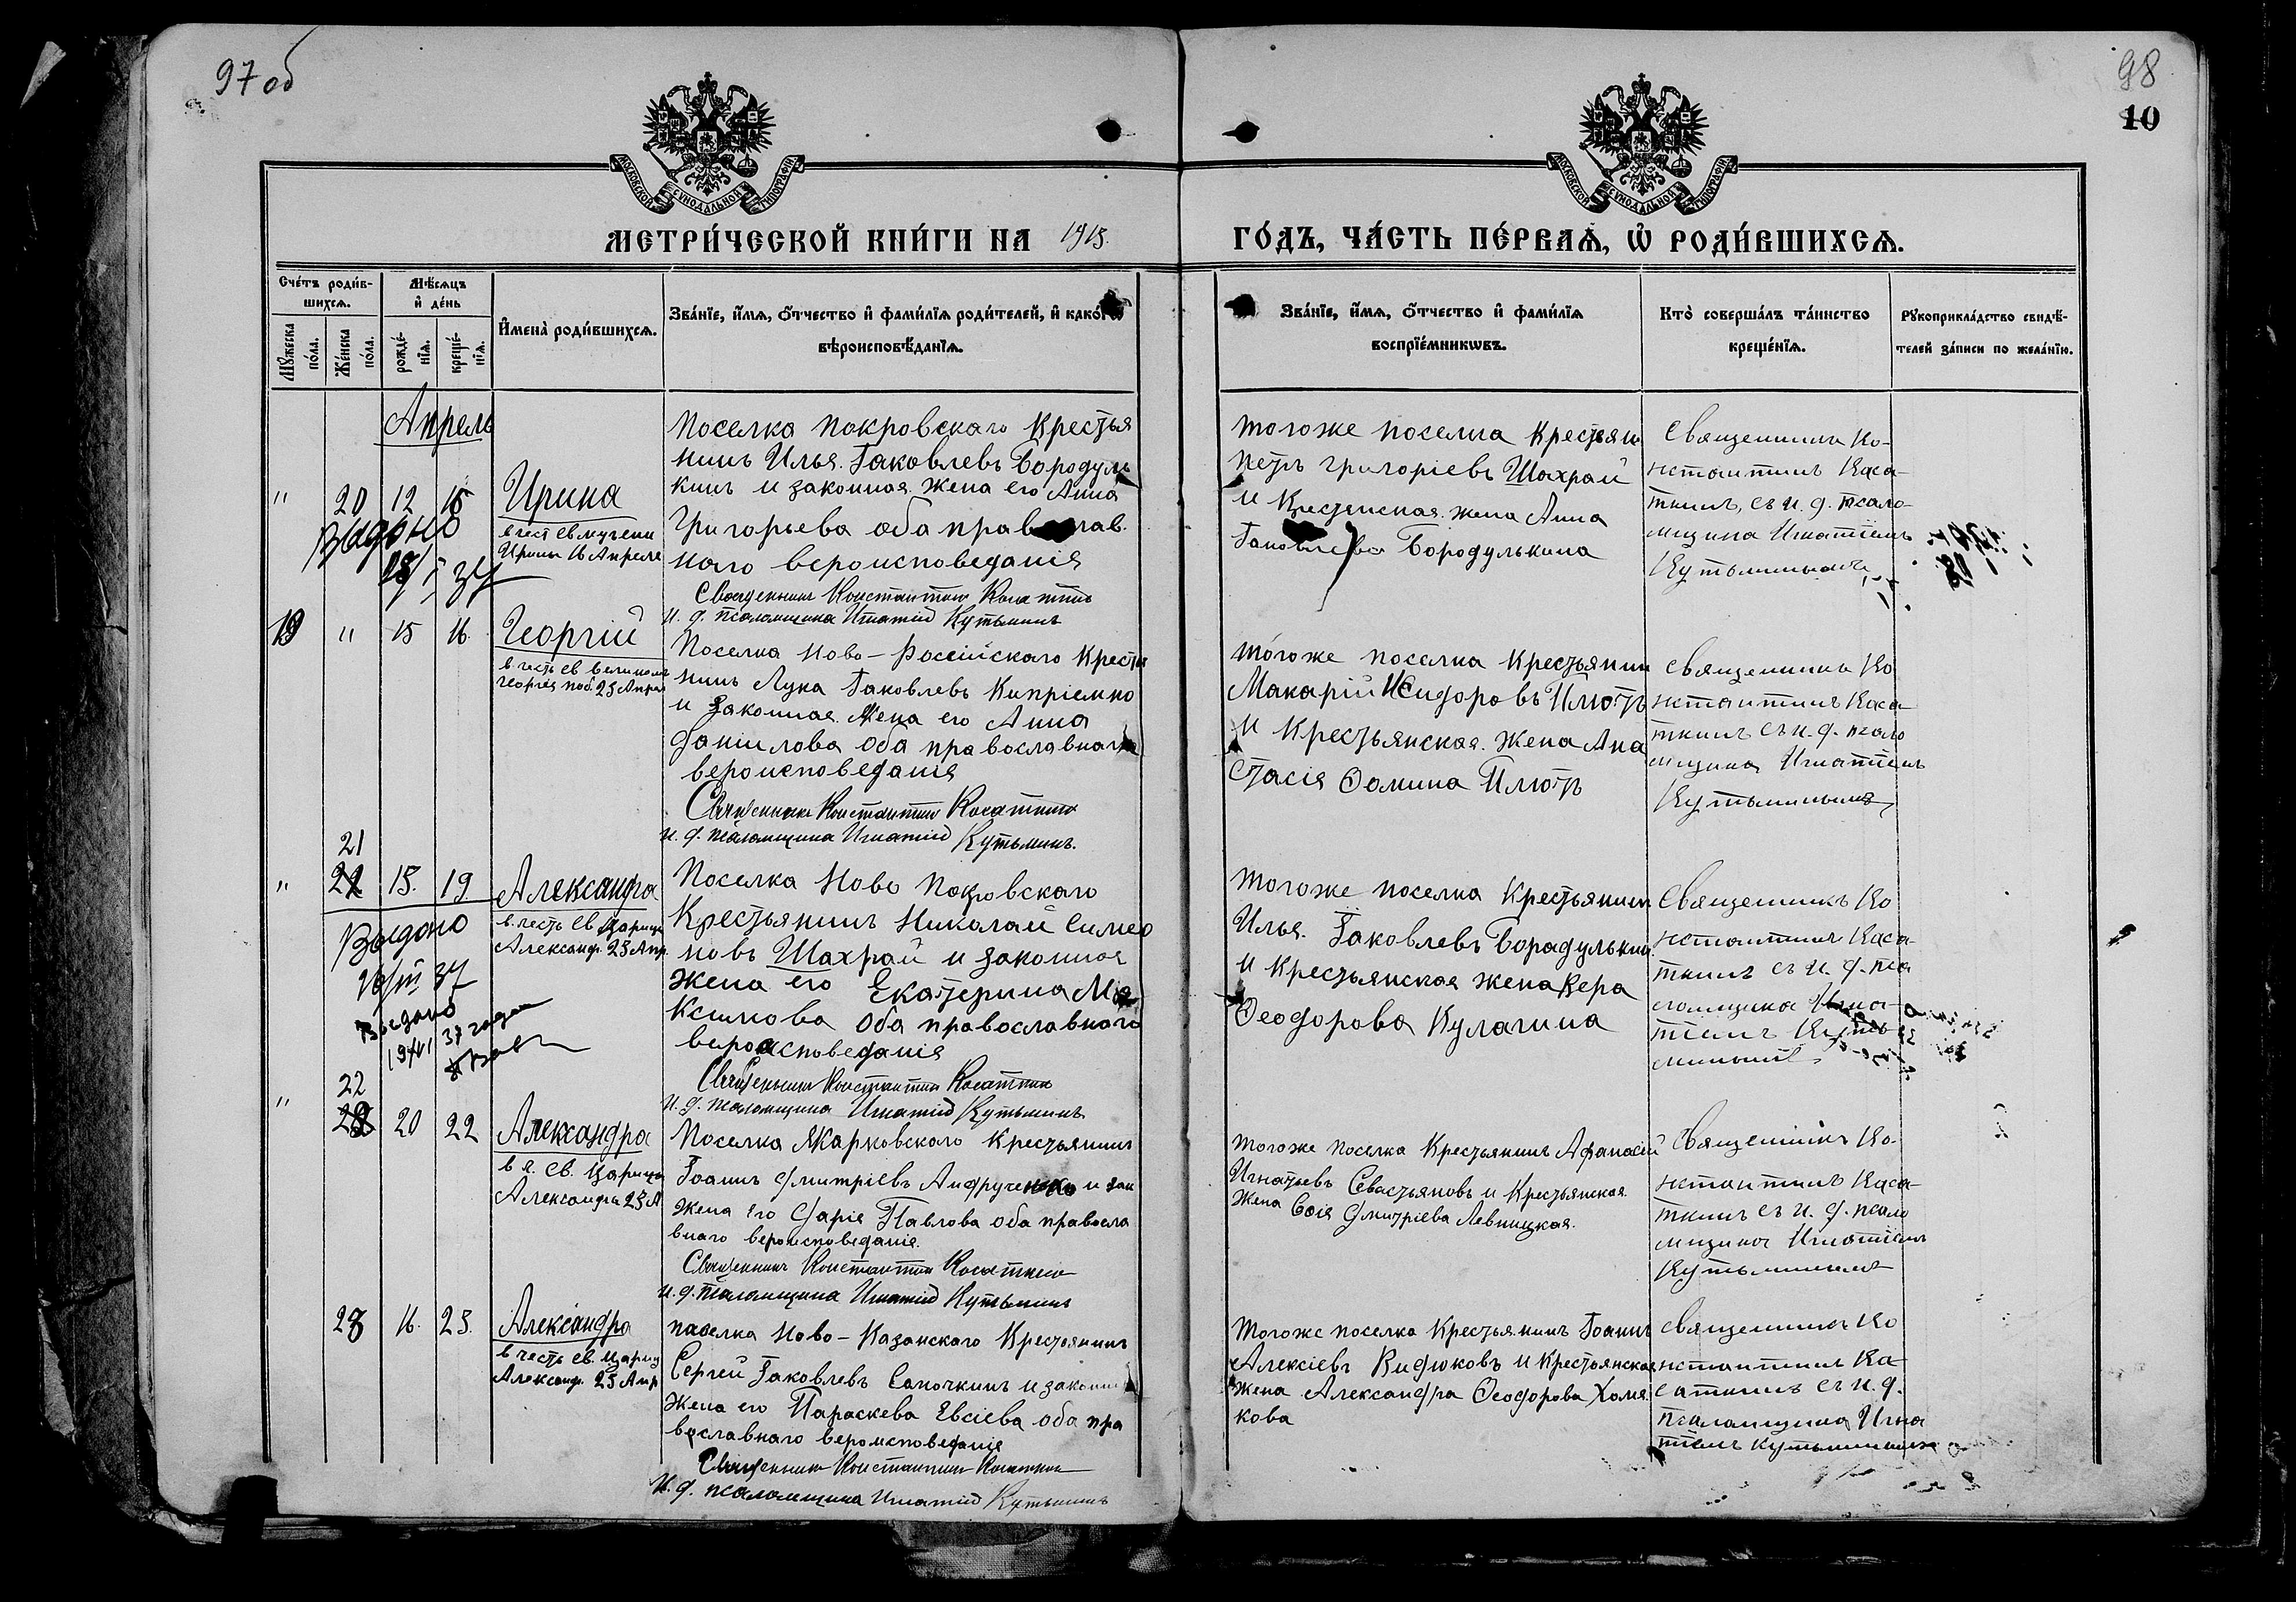 97 об
98
10
МОСКОВСКОЙ СѴНОДАЛЬНОЙ ТИПОГРАФІИ
МОСКОВСКОЙ СѴНОДАЛЬНОЙ ТИПОГРАФІИ
МЕТРИ́ЧЕСКОЙ КНИ́ГИ НА 1915.
ГО́ДЪ, ЧА́СТЬ ПЕ́РВАѦ, Ѡ҆ РОДИ́ВШИХСѦ.
Сче́тъ роди́в-
шихсѧ.
Мꙋ́жеска по́ла.
Же́нска по́ла.
Мѣ́сѧцъ
и҆ де́нь
рожде́-нїѧ.
креще́-нїѧ.
И҆мена̀ роди́вшихсѧ.
Зва́нїе, и҆́мѧ, ѻ҆́тчество и҆ фами́лїѧ роди́телей, и҆ како́гѡ
вѣроисповѣ́данїѧ.
Зва́нїе, и҆́мѧ, ѻ҆́тчество и҆ фами́лїѧ
воспрїе́мникѡвъ.
Кто̀ соверша́лъ та́инство
креще́нїѧ.
Рꙋкоприкла́дство свидѣ́-
телей за́писи по жела́нїю.
Апрель
" 20 12 16
Ирина
в чест св мучени
Ирины 16 Апреля
Выдано
Поселка Покровскаго Крестья
нинъ Илья Іаковлевъ Бородуль
кинъ и законная жена его Анна
Григорьева оба православ
наго вероисповеданія
Священникъ Константинъ Касаткинъ
и. д. псаломщика Игнатій Кутьминъ
тогоже поселка Крестьян
Петръ Григоріевъ Шахрай
и Крестьянская жена Анна
Іаковлева Бородулькина
Священникъ Ко-
нстантинъ Каса-
ткинъ, съ и. д. псало-
мщика Игнатіемъ
Кутьминымъ
19 " 15 16.
Георгій
в честь св великом
Георгія поб. 23 Апрел
Поселка Ново-Россійскаго Крестья
нинъ Лука Іаковлевъ Кипріемко
и Законная Жена его Анна
Даніилова Оба православнаго
вероисповеданія
Священникъ Константинъ Касаткинъ
и. д. псаломщика Игнатій Кутьминъ.
тогоже поселка Крестьянин
Макарій Исидоровъ Плютъ
и Крестьянская Жена Ана
стасія Фомина Плютъ
священника Ко
нстантинъ Каса-
ткинъ съ и. д. псало
мщика Игнатіемъ
Кутьминымъ
21
" 15. 19.
Александра
в честь Св Царицы
Александ. 23 Апр.
Выдано
Выдано
Поселка Ново Покровскаго
Крестьянинъ Николай Симео
новъ Шахрай и законная
жена его Екатерина Ма
ксимова Оба православнаго
вероисповеданія
Священникъ Константинъ Касаткинъ
и. д. псаломщика Игнатій Кутьминъ
тогоже поселка Крестьянин
Илья Іаковлевъ Борадулькин
и Крестьянская жена Вера
Феодорова Кулагина
Священникъ Ко
нстантинъ Каса-
ткинъ съ и. д. пса
ломщика Игна-
тіемъ Кутьминымъ
22
" 20 22
Александра
в ч. св. Царицы
Александры 23 А
Поселка Жарковскаго Крестьянинъ
Іоаннъ Дмитріевъ Андрученко и зак
жена его Дарія Павлова оба правосла
внаго вероисповеданія.
Священникъ Константинъ Касаткинъ
и. д. псаломщика Игнатій Кутьминъ
тогоже поселка Крестьянинъ Афанасій
Игнатьевъ Севастьяновъ и Крестьянская
жена Софія Дмитріева Левницкая.
Священникъ Ко-
нстантинъ Каса-
ткинъ съ и. д. псало
мщика Игнатіемъ
Кутьминымъ
23 16. 23.
Александра
в честь св. Цариц
Александ. 23 Апр
поселка Ново-Казанскаго Крестьянинъ
Сергей Іаковлевъ Сапочкинъ и законн
жена его Параскева Евсіева оба пра
вославнаго вероисповеданія
Священникъ Константинъ Касаткинъ
и. д. псаломщика Игнатій Кутьминъ
тогоже поселка Крестьянинъ Іоаннъ
Алексіевъ Видюковъ и Крестьянская
жена Александра Феодорова Хомя
кова
священника Ко
нстантинъ Ка-
саткинъ съ и. д.
псаломщика Игна
тіемъ Кутьминымъ